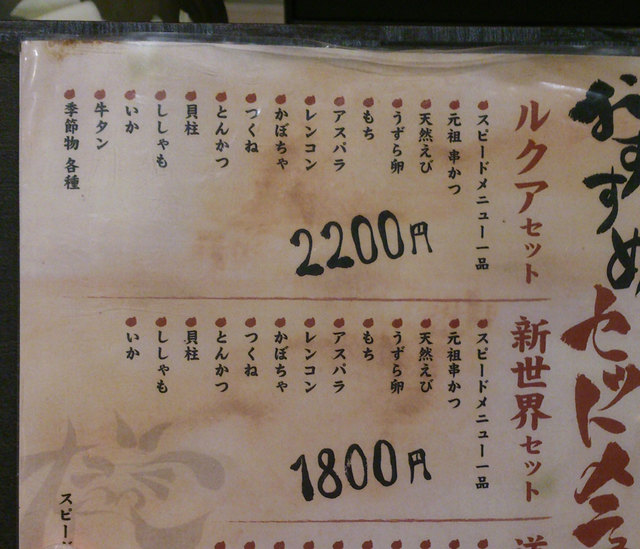 おすすめ
セットメニュ
ルクアセット
スピードメニュー一品
元祖 串かつ
天然えび
うずら卵
もち
アスパラ
レンコン
かぼちゃ
つくね
とんかつ
貝柱
ししゃも
いか
牛タン
季節物 各種
2200円
新世界セット
スピードメニュー一品
元祖串かつ
天然えび
うずら卵
もち
アスパラ
レンコン
かぼちゃ
つくね
とんかつ
貝柱
ししゃも
いか
1800円
スピード